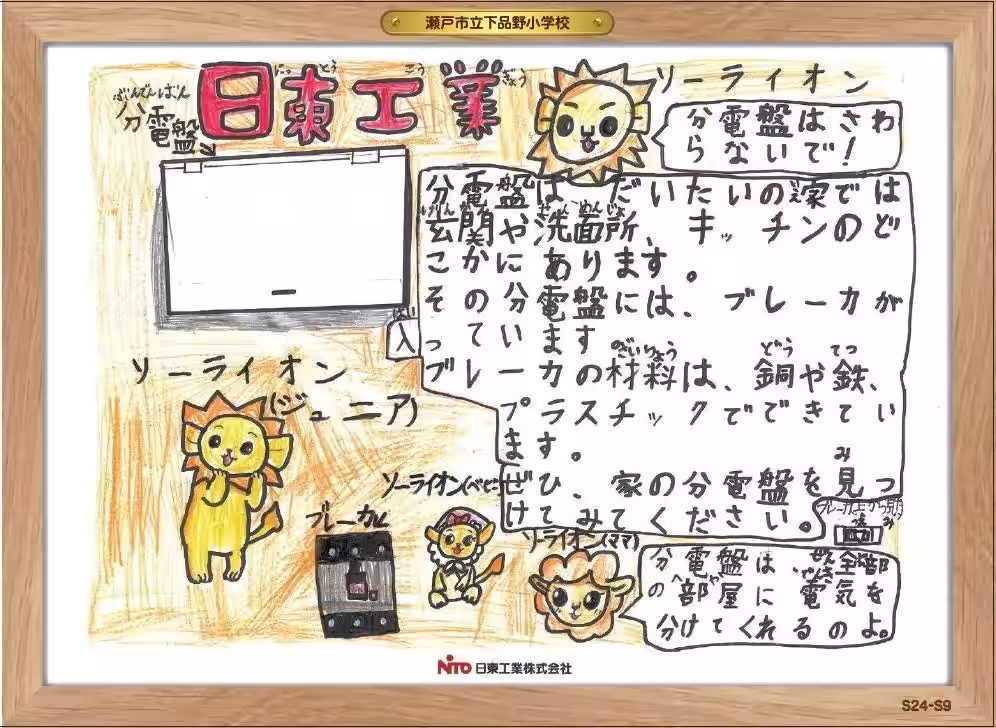 瀬戸市立下品野小学校
にっとうこうぎょう
日東工業
ぶんでんばん
分電盤
ソーライオン
分電盤はさわ
らないで!
分電盤は だいたいの家では
玄関や洗面所、キッチンのど
こかに あります。
その分電盤には、ブレーカが
入っています
ブレーカの材料は、銅や鉄、
プラスチックでできてい
ます。
ぜひ、家の分電盤を見つ
けてみてください。
ソーライオン
(ジュニア)
ソーライオン(ベビー)
ブレーカ
ソーライオン(ママ)
分電盤は 全部
の部屋に 電気を
分けてくれるのよ。
NITO 日東工業株式会社
S24-S9